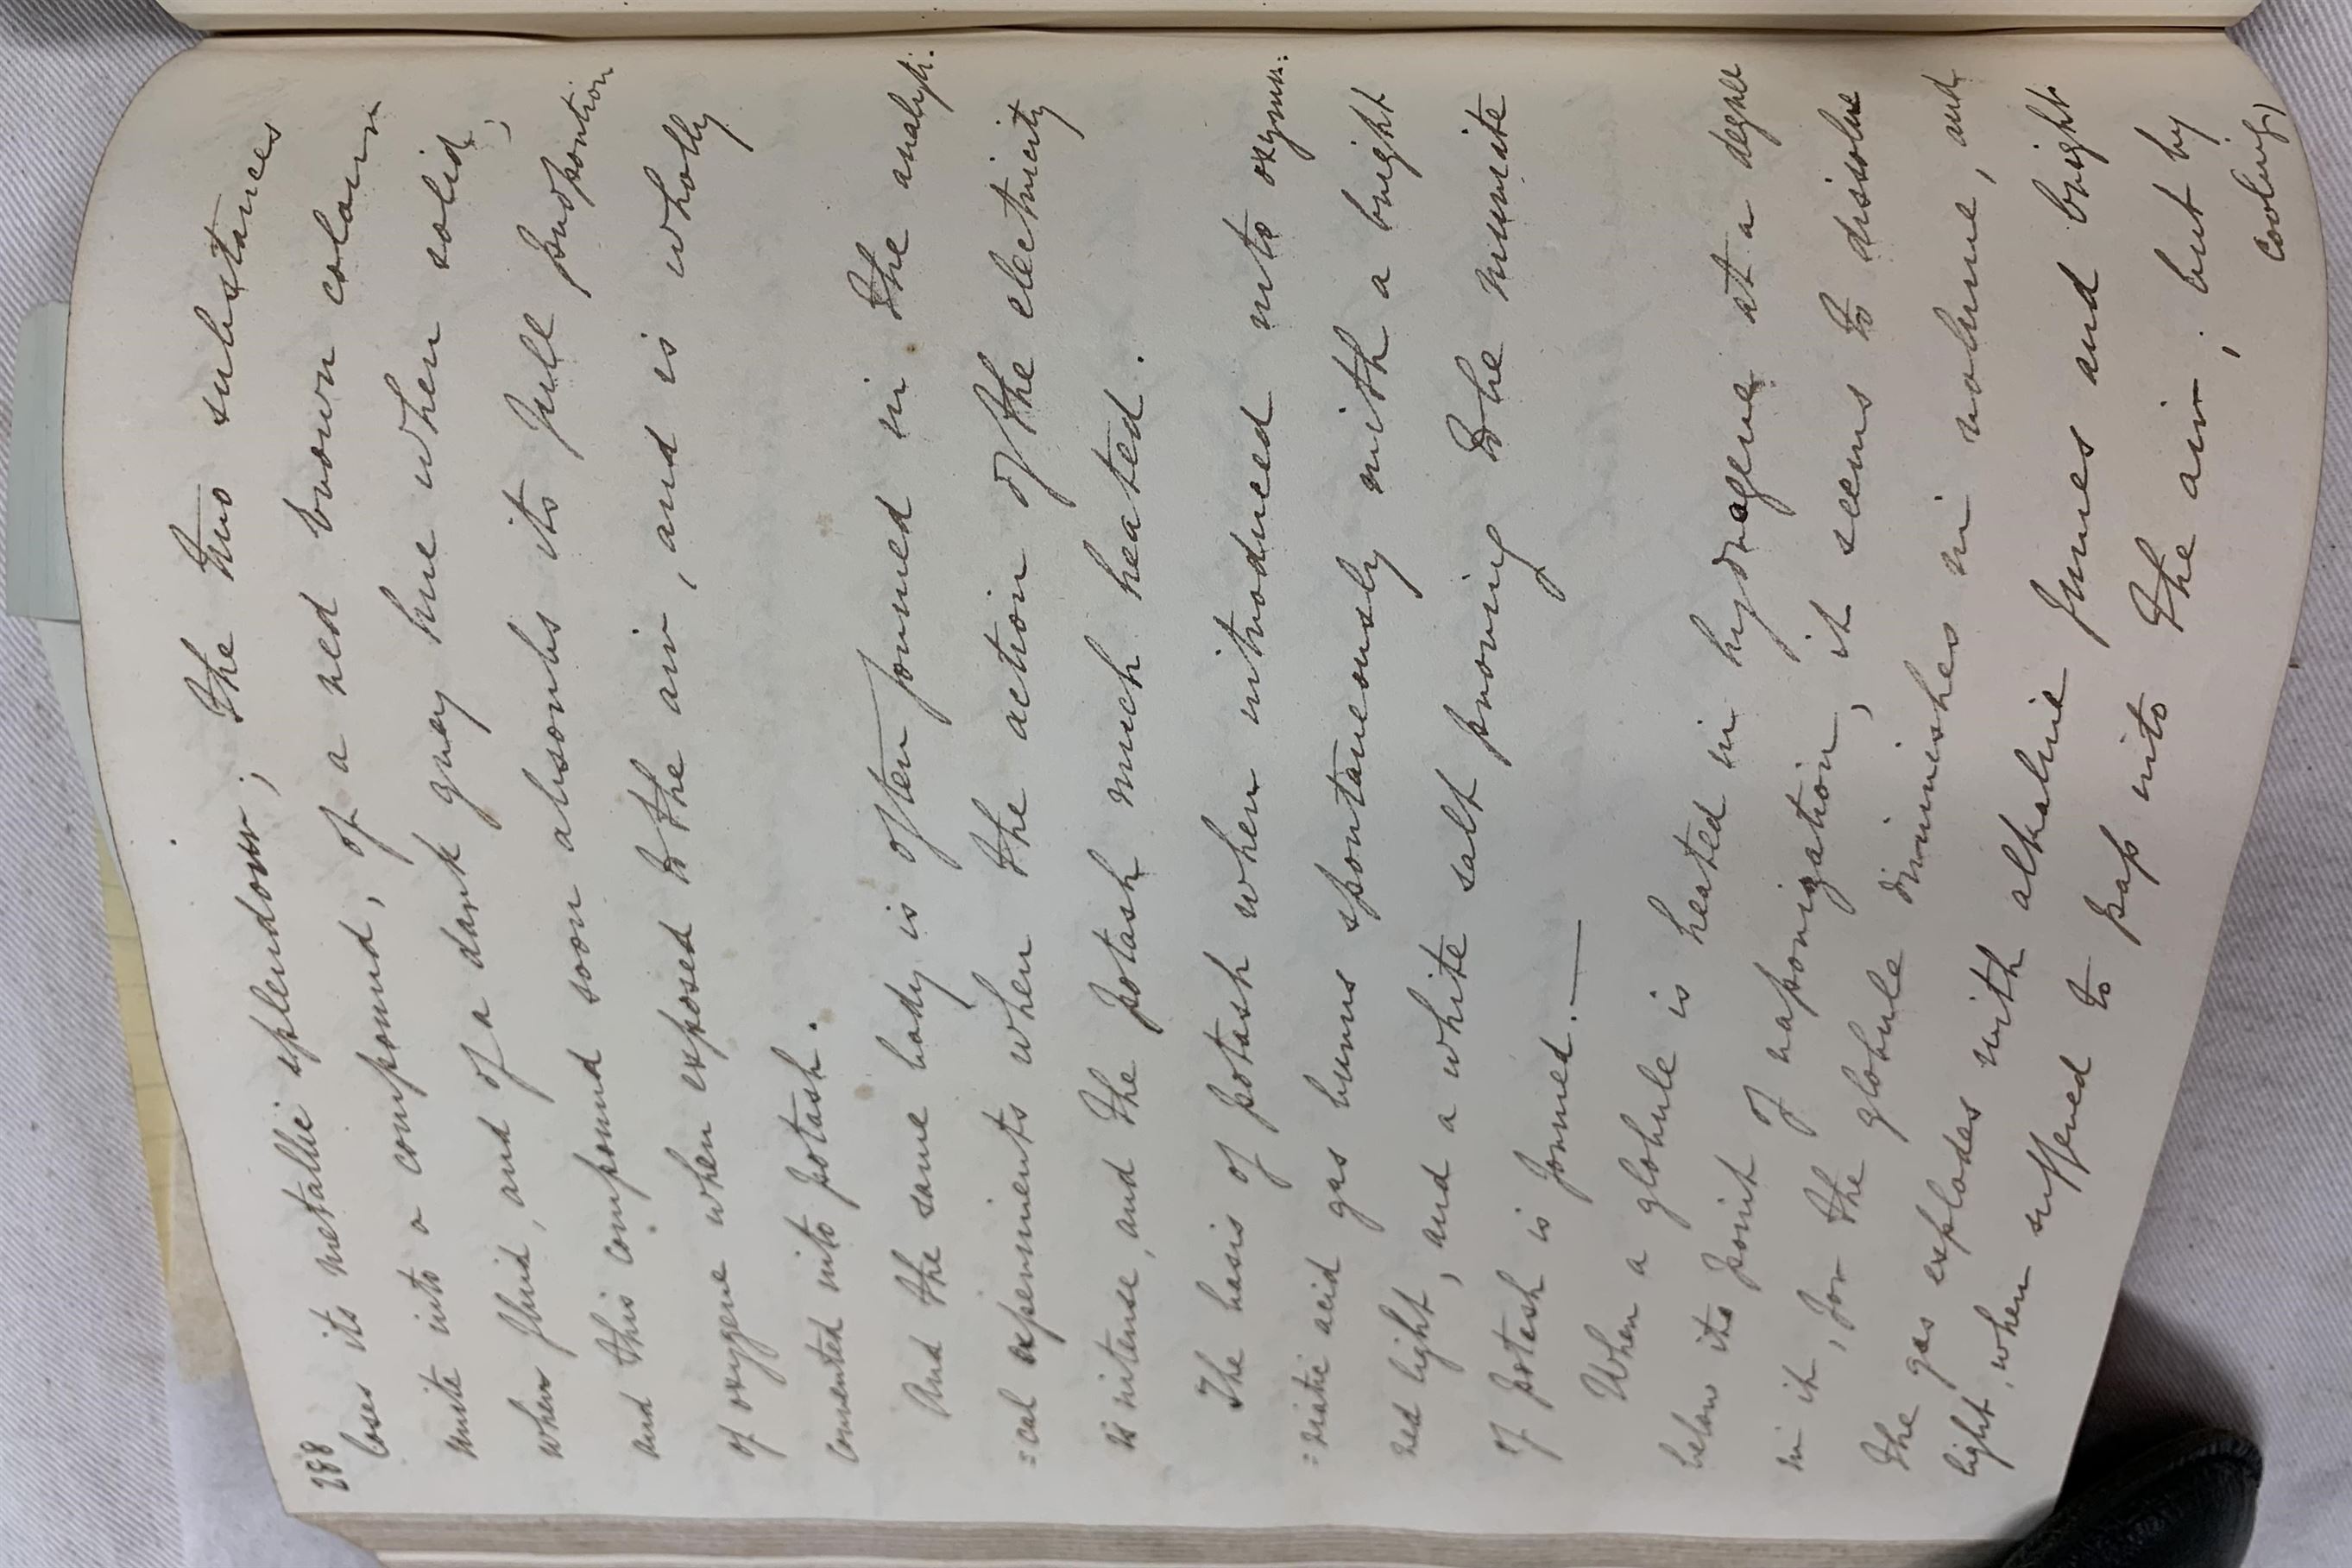 288
loses its metallic splendour; the two substances
unite into a compound, of a red brown colour
when fluid, and of a dark grey hue when solid;
and this compound soon absorbs its full proportion
of oxygene when exposed to the air, and is wholly
converted into potash.
And the same body is often formed in the analyti:
:cal experiments when the action of the electricity
is intense, and the potash much heated.
The basis of potash when introduced into oxymu:
:riatic acid gas burns spontaneously with a bright
red light, and a white salt proving to be muriate
of potash is formed. —
When a globule is heated in hydrogene at a degree
below its point of vaporization, it seems to dissolve
in it, for the globule diminishes in volume, and
the gas explodes with alkaline fumes and bright
light, when suffered to pass into the air; but by
cooling,